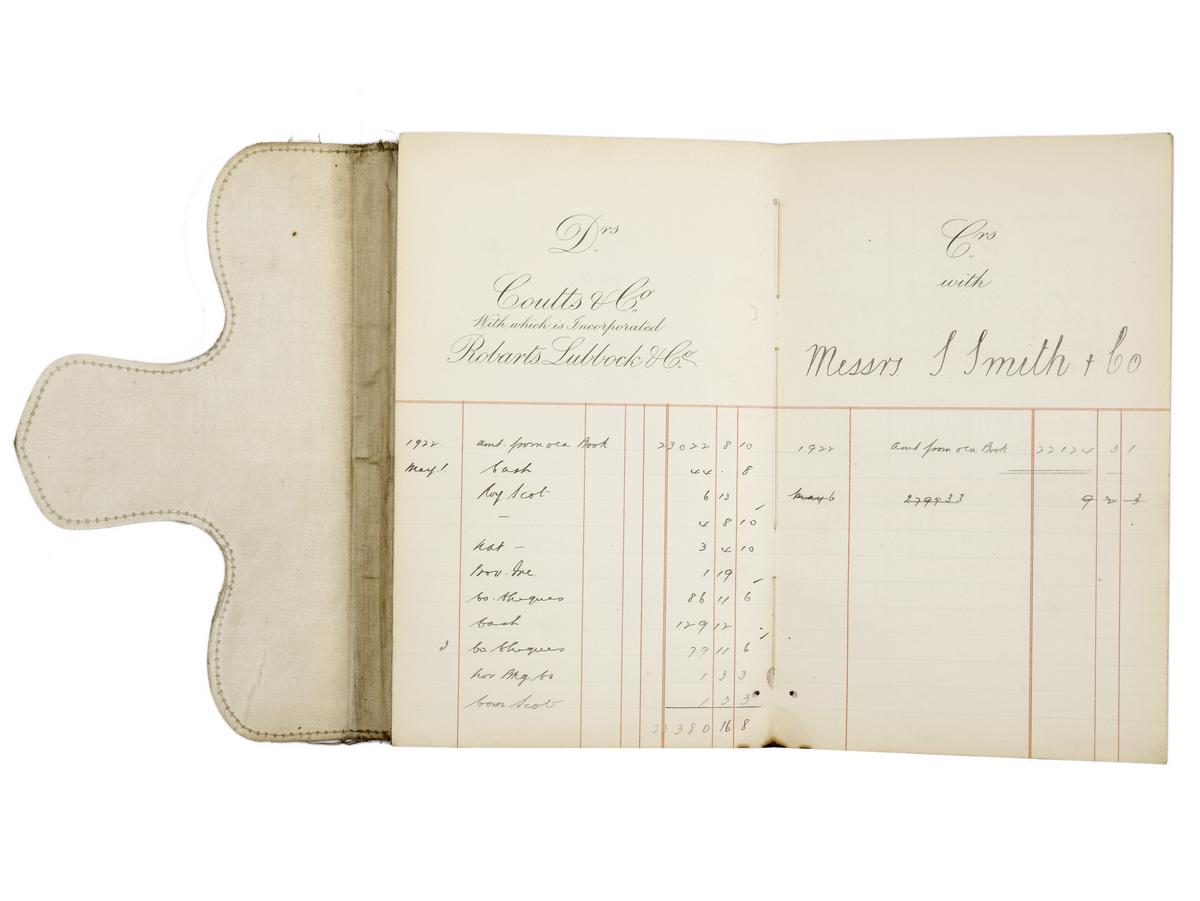 Drs
Coutts & Co
With which is Incorporated
Robarts Lubbock & Co
1922 amt. from old Book 23022 8 10
May. 1 Cash 44 . 8
Roy Scot 6 13 –
— 4 8 10
Nat — 3 4 10
Prov. Ire. 1 19 –
Co. Cheques 86 11 6
Cash 129 12 .
3 Co. Cheques 79 11 6
Nor Bkg Co 1 3 3
Com Scot 1 3 3
23380 16 8
Crs
with
Messrs S Smith & Co
1922 amt from old Book 22124 3 1
May 6 9 2 3